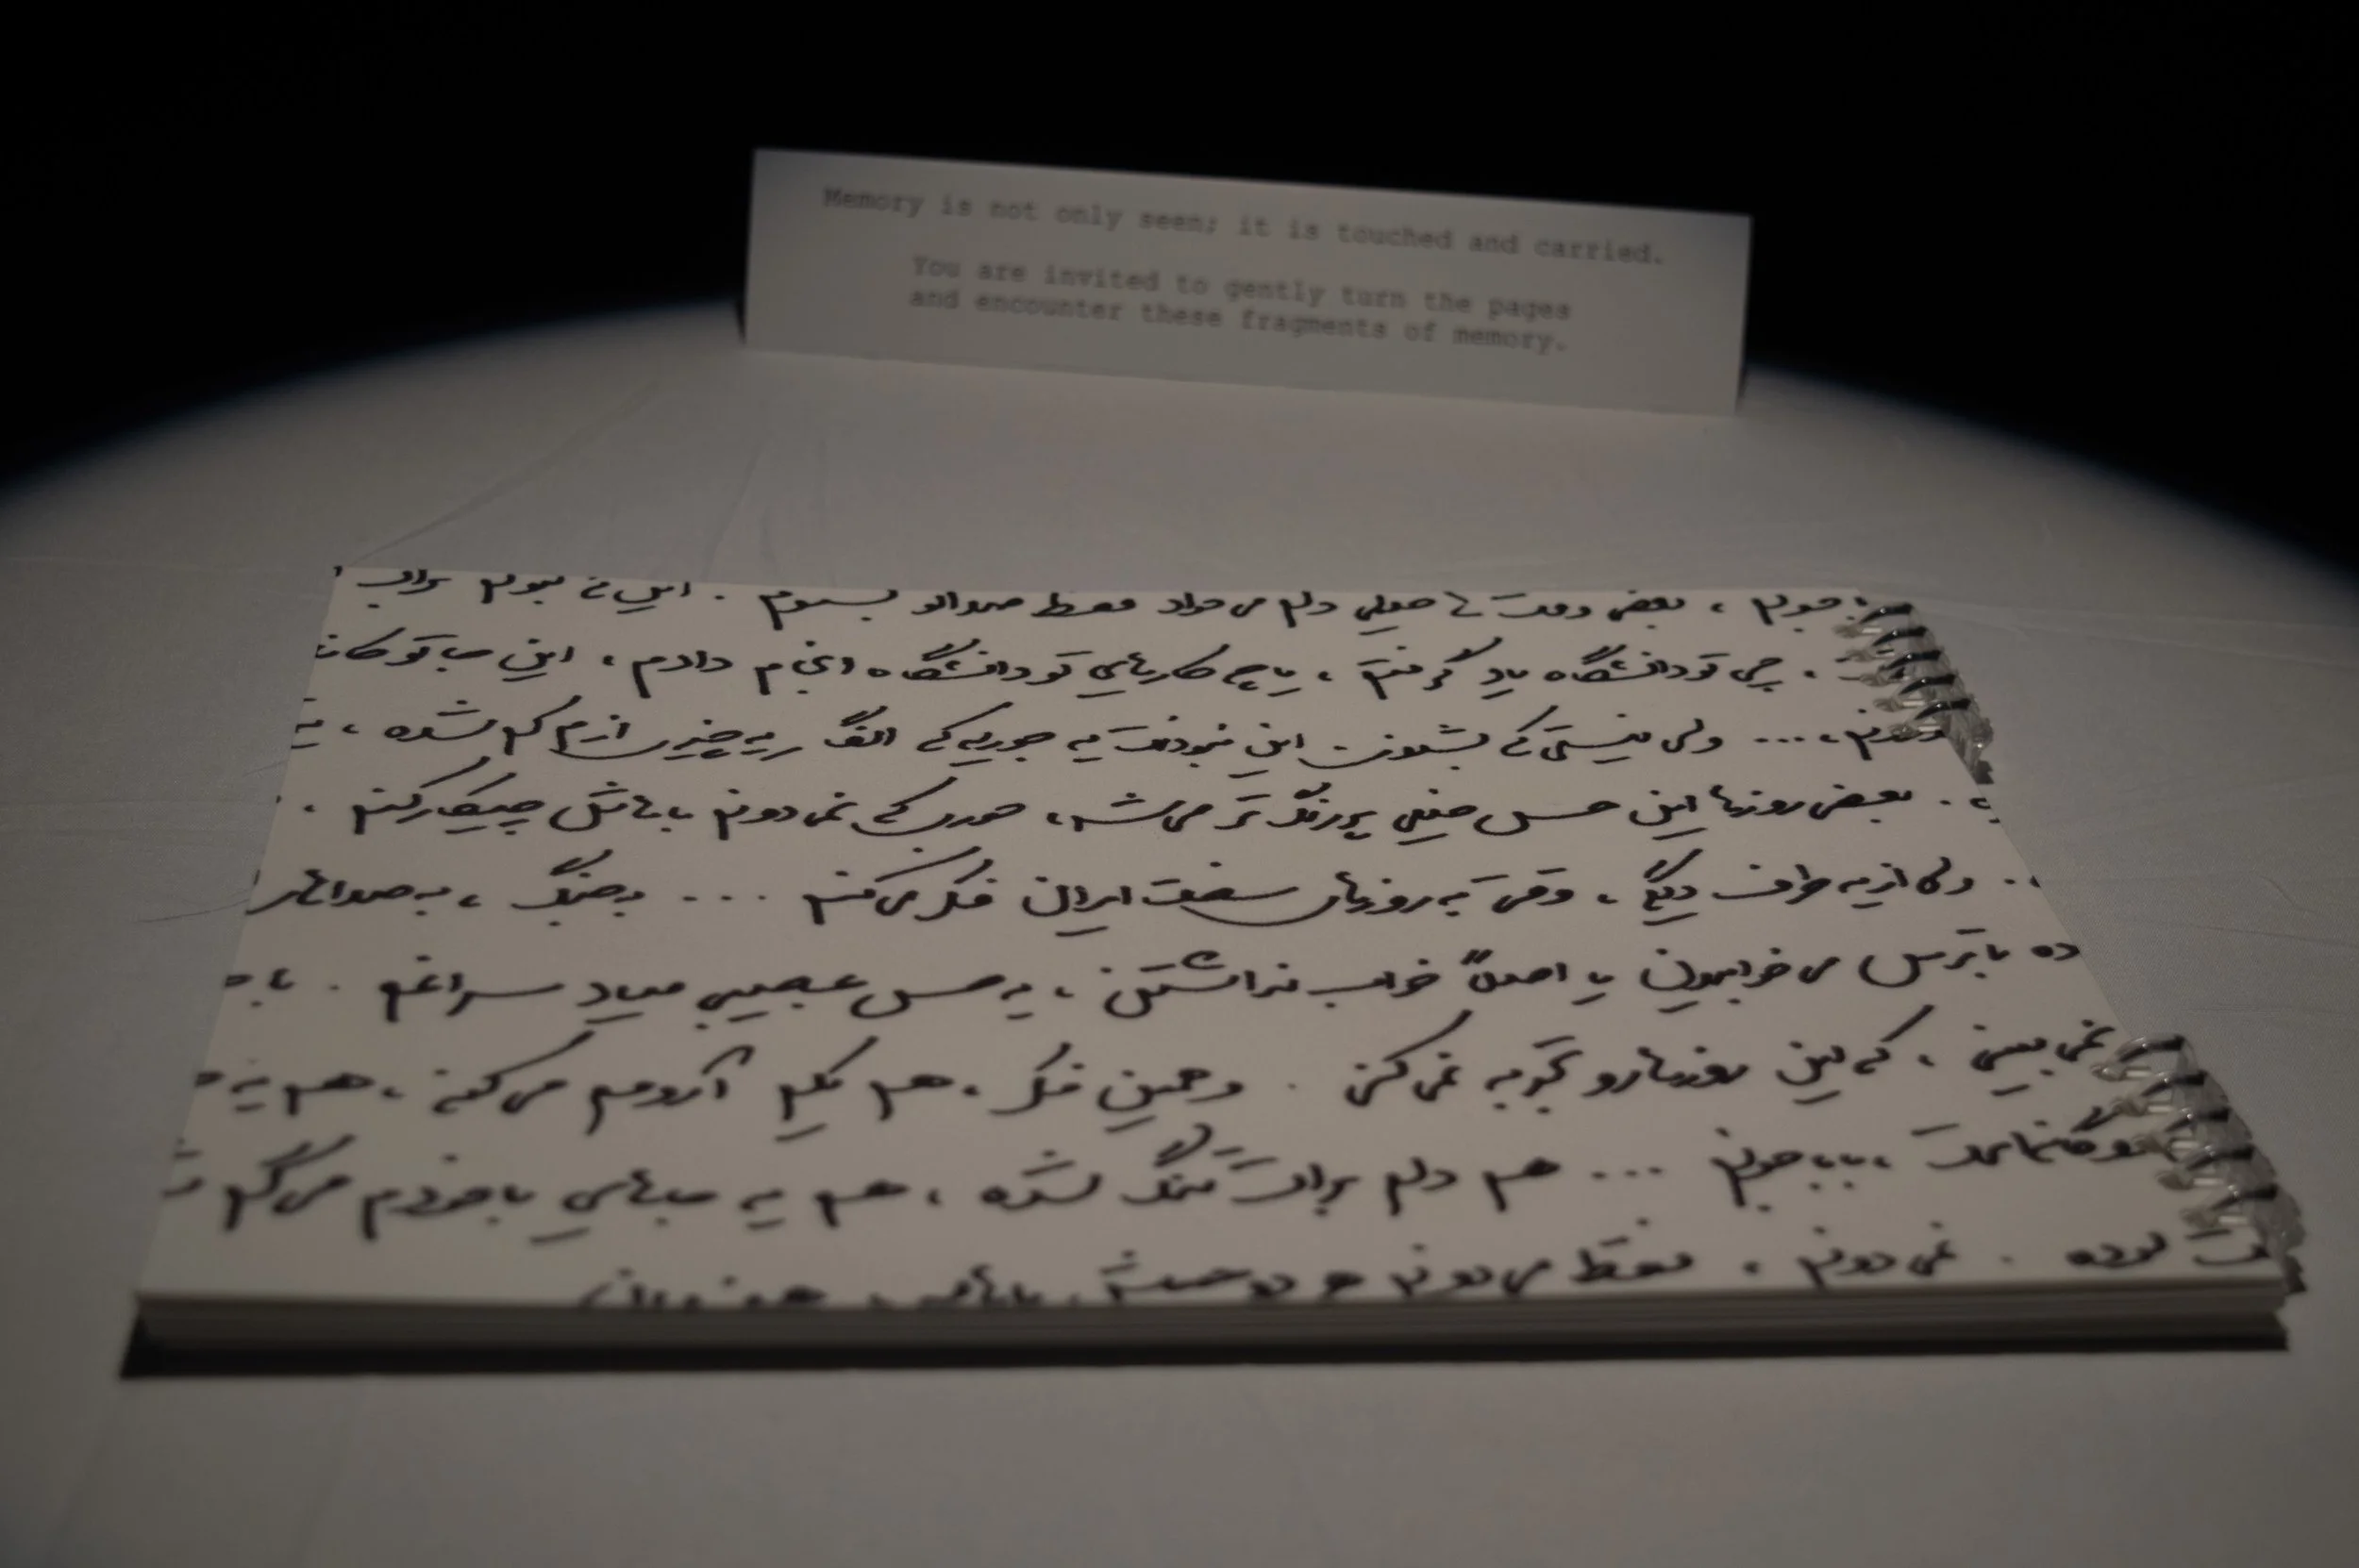 Memory is not only seen; it is touched and carried.
You are invited to gently turn the pages
and encounter these fragments of memory.
جونم ، بعضی وقت‌ها خیلی دلم می‌خواد فقط صداتو بشنوم . این که بتونم برات
، چی تو دانشگاه یاد گرفتم ، یا چه کارهایی تو دانشگاه انجام دادم ، این جا تو
.... ولی نیستی که بشنوی. این نبودنت یه جوریه که انگار یه چیزی ازم کم شده ،
. بعضی روزها این حس خیلی پررنگ‌تر می‌شه ، جوری که نمی‌دونم باهاش چیکار کنم .
. ولی از یه طرف دیگه ، وقتی به روزهای سخت ایران فکر می‌کنم ... به جنگ ، به صداهای
با ترس می‌خوابیدن یا اصلاً خواب نداشتن ، یه حس عجیبی میاد سراغم .
نمی‌بینی ، که این روزها رو تجربه نمی‌کنی . و همین فکر ، هم یکم آرومم می‌کنه ، هم یه
، باباجونم ... هم دلم برات تنگ شده ، هم یه جاهایی با خودم می‌گم
. نمی‌دونم ، فقط می‌دونم